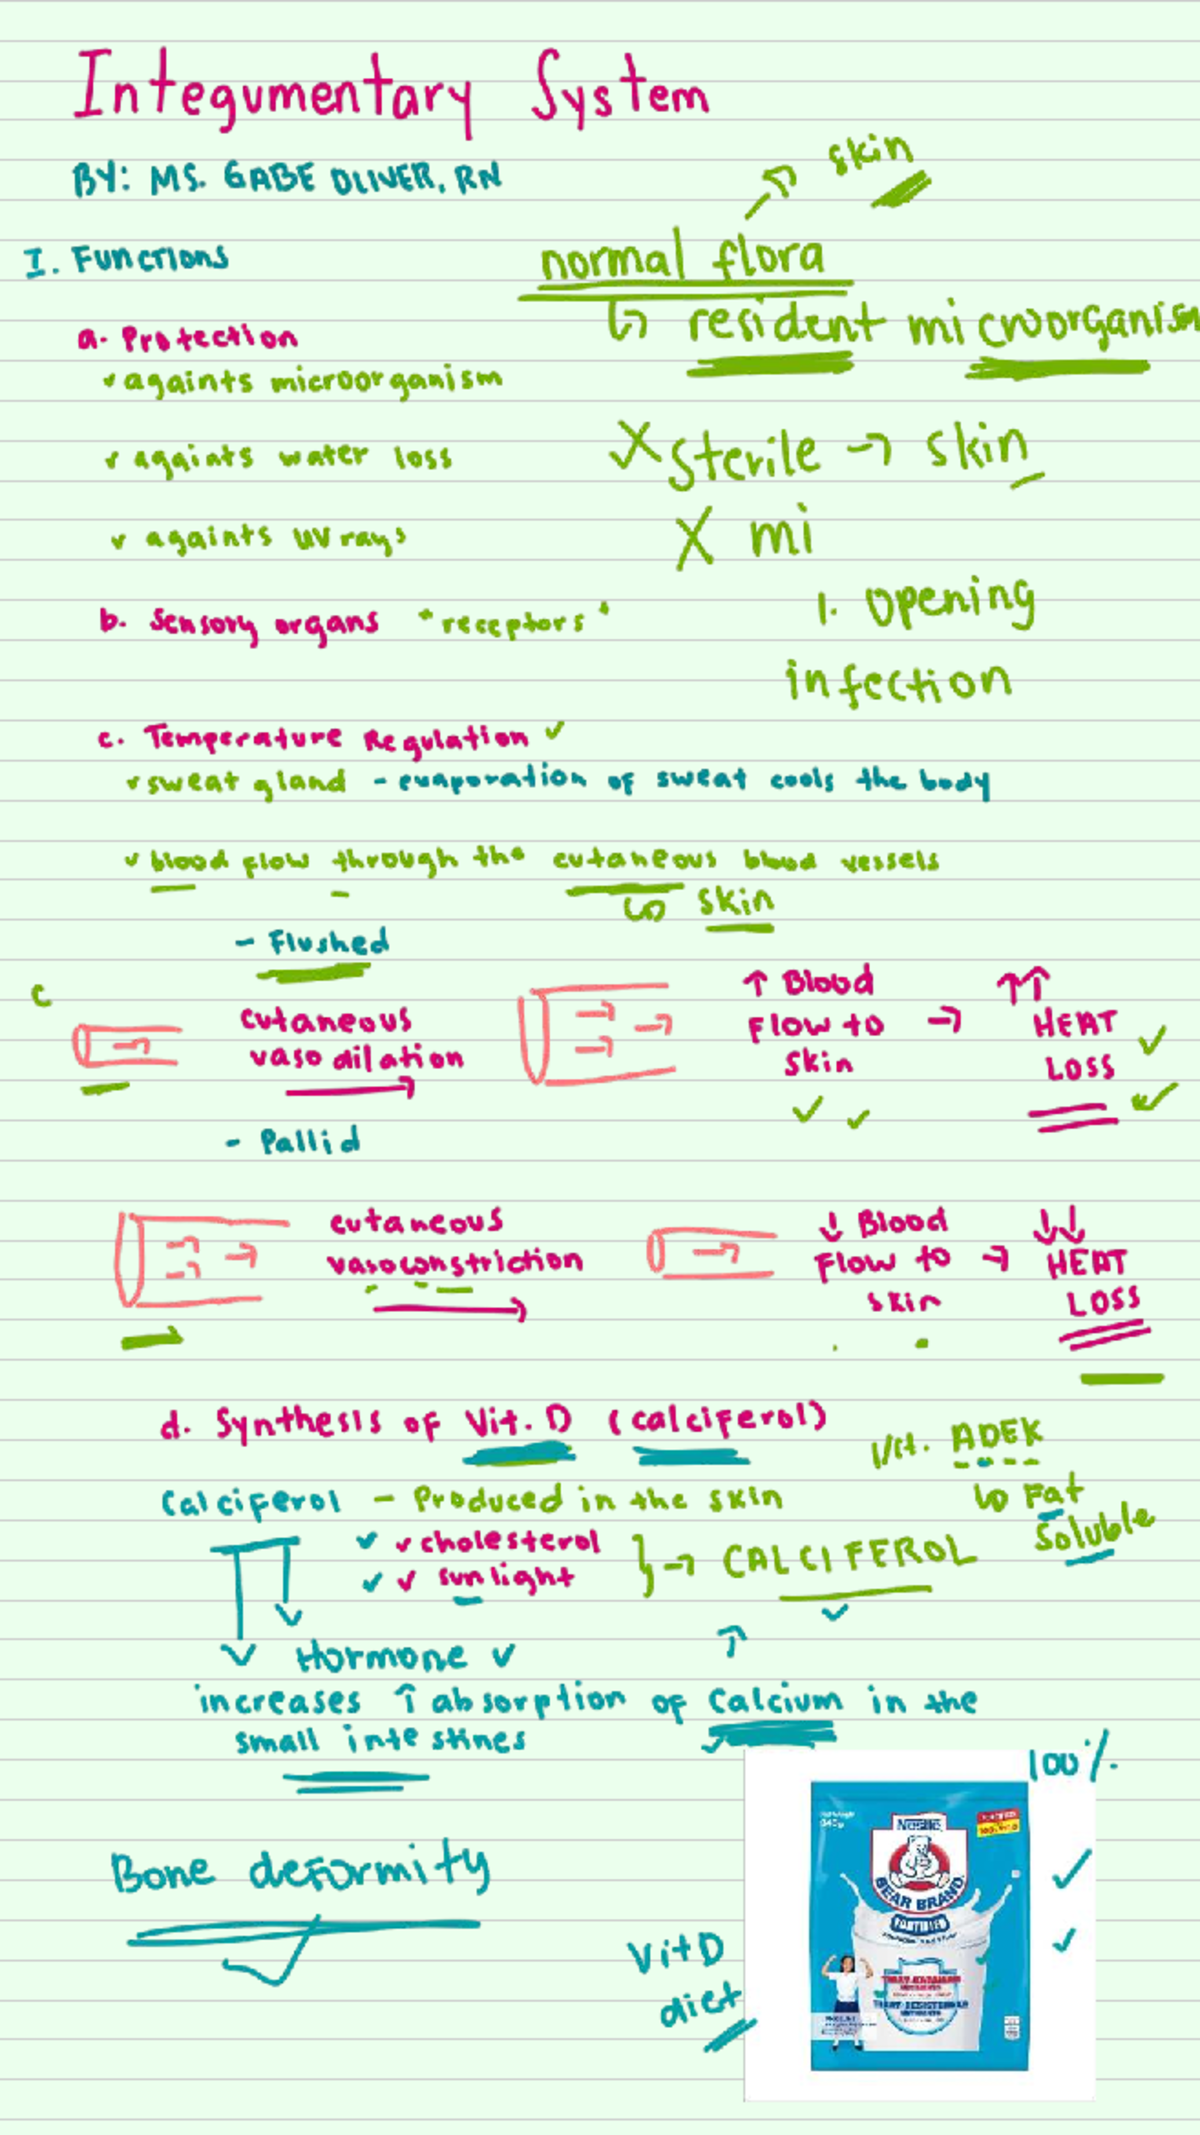 Integumentary System
BY: MS. GABE OLIVER, RN
skin
I. Functions
normal flora
↳ resident microorganism
a. Protection
✓ againts microorganism
✓ againts water loss
X sterile → skin
✓ againts UV rays
X mi
1. opening
infection
b. Sensory organs "receptors"
c. Temperature Regulation ✓
✓ sweat gland - evaporation of sweat cools the body
✓ blood flow through the cutaneous blood vessels
↳ skin
- Flushed
C
cutaneous
vasodilation
↑ Blood
Flow to →
Skin
↑↑
HEAT
LOSS
- Pallid
cutaneous
vasoconstriction
↓ Blood
Flow to →
skin
↓↓
HEAT
LOSS
d. Synthesis of Vit. D (calciferol)
Vit. ADEK
↳ Fat
Soluble
Calciferol - Produced in the skin
✓ ✓ cholesterol
✓ ✓ sunlight
} → CALCIFEROL
Hormone ✓
increases ↑ absorption of Calcium in the
small intestines
100%
Bone deformity
Vit D
diet
Nestlé
BEAR BRAND
FORTIFIED